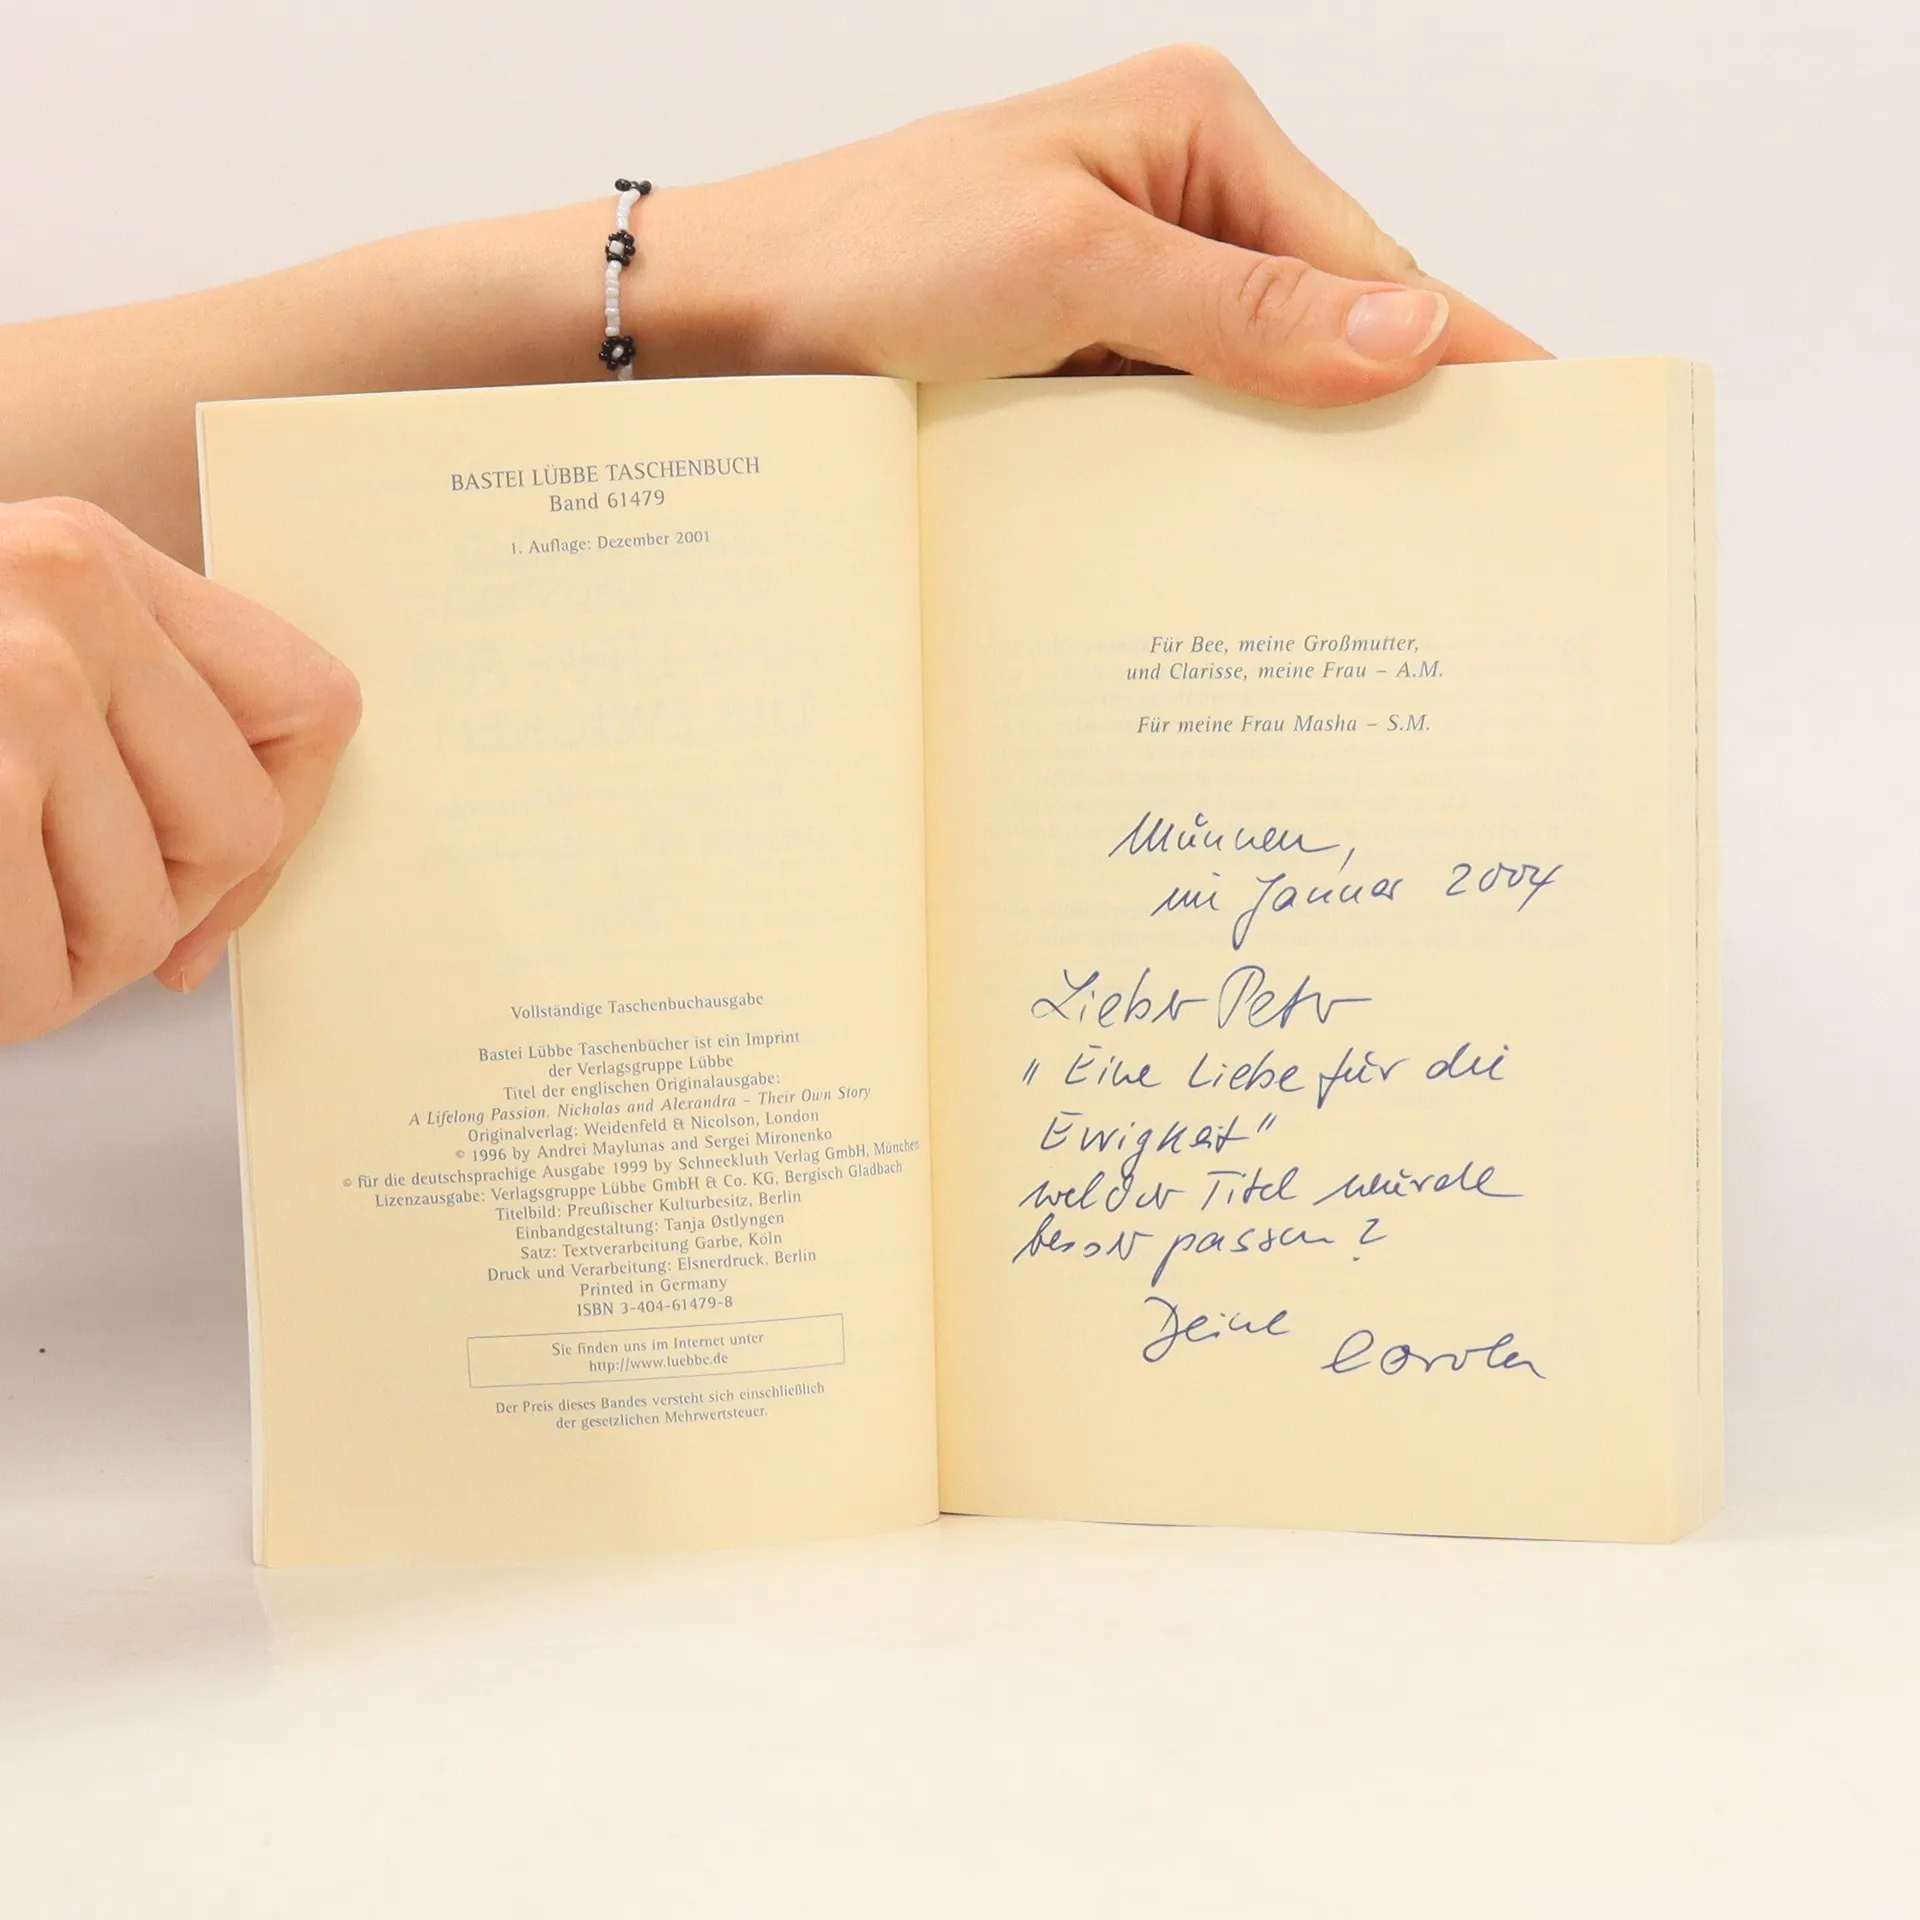 BASTEI LÜBBE TASCHENBUCH
Band 61479
1. Auflage: Dezember 2001
Vollständige Taschenbuchausgabe
Bastei Lübbe Taschenbücher ist ein Imprint
der Verlagsgruppe Lübbe
Titel der englischen Originalausgabe:
A Lifelong Passion. Nicholas and Alexandra – Their Own Story
Originalverlag: Weidenfeld & Nicolson, London
© 1996 by Andrei Maylunas and Sergei Mironenko
© für die deutschsprachige Ausgabe 1999 by Schneekluth Verlag GmbH, München
Lizenzausgabe: Verlagsgruppe Lübbe GmbH & Co. KG, Bergisch Gladbach
Titelbild: Preußischer Kulturbesitz, Berlin
Einbandgestaltung: Tanja Østlyngen
Satz: Textverarbeitung Garbe, Köln
Druck und Verarbeitung: Elsnerdruck, Berlin
Printed in Germany
ISBN 3-404-61479-8
Sie finden uns im Internet unter
http://www.luebbe.de
Der Preis dieses Bandes versteht sich einschließlich
der gesetzlichen Mehrwertsteuer.
Für Bee, meine Großmutter,
und Clarisse, meine Frau – A.M.
Für meine Frau Masha – S.M.
München,
im Januar 2004
Lieber Peter
"Eine Liebe für die
Ewigkeit"
welcher Titel würde
besser passen?
Deine
Carola